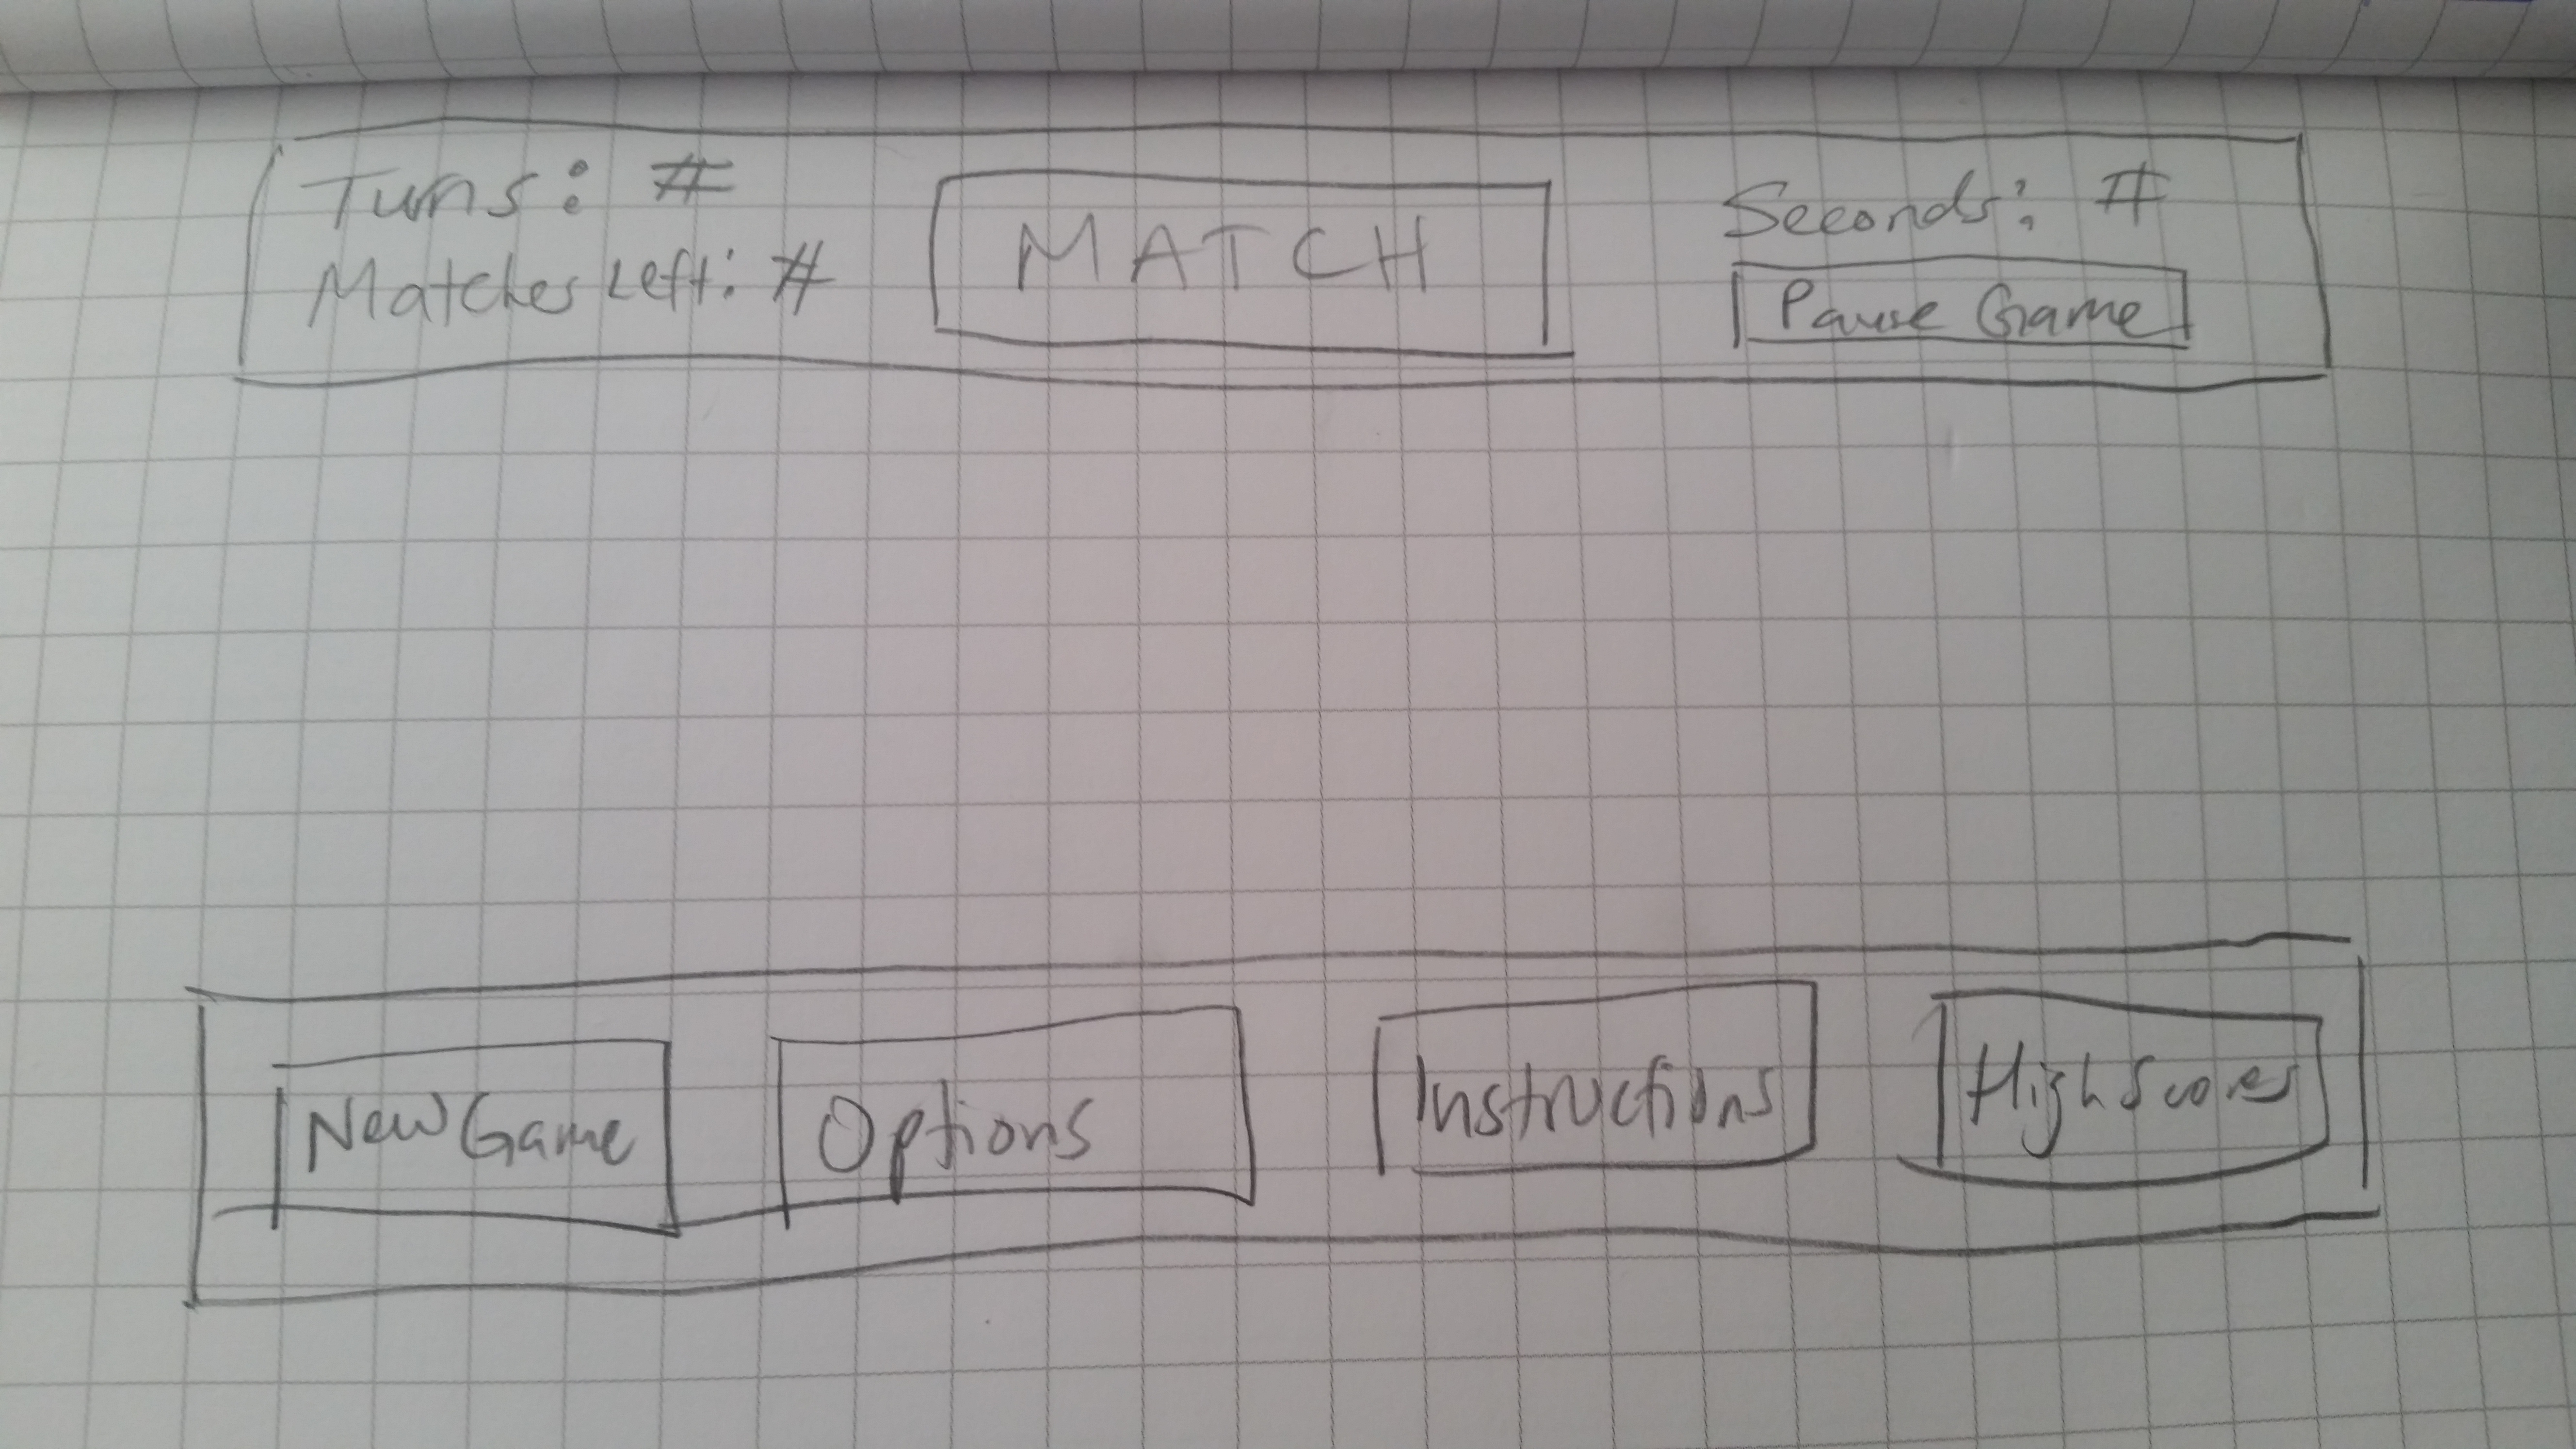 Turns: #
Matches Left: #
MATCH
Seconds: #
Pause Game
New Game
Options
Instructions
High Scores